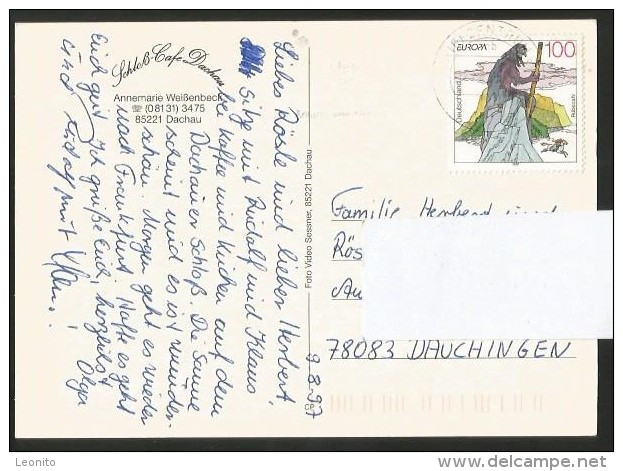 Schloß-Cafe Dachau
Annemarie Weißenbeck
☏ (08131) 3475
85221 Dachau
9.8.97
Liebe Rösle und lieber Herbert,
sitze mit Rudolf und Klaus
bei Kaffee und Kuchen auf dem
Dachauer Schloß. Die Sonne
scheint und es ist wunder-
schön. Morgen geht es wieder
nach Frankfurt. Hoffe es geht
Euch gut. Ich grüße Euch herzlichst
Olga
und Rudolf mit
Foto Video Sessner, 85221 Dachau
CP
EUROPA
100
Deutschland
Rübezahl
Familie Herbert und
Rös
Au
78083 DAUCHINGEN
Leonito
delcampe.net